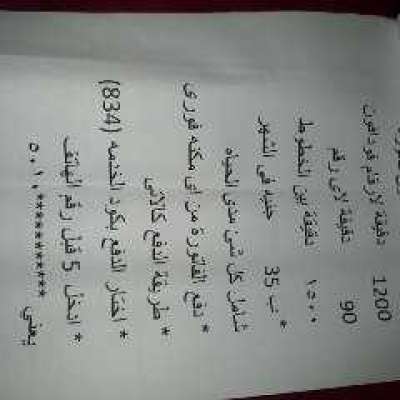 1200 دقيقة لارقام فودافون
90 دقيقة لاى رقم
١٥٠٠ دقيقة بين الخطوط
* ب 35 جنيه فى الشهر
شامل كل شئ مدى الحياه
* دفع الفاتورة من اى مكنه فورى
* طريقة الدفع كالاتى
* اختار الدفع بكود الخدمه (834)
* ادخل 5 قبل رقم الهاتف
يعنى **********٥٠١٠